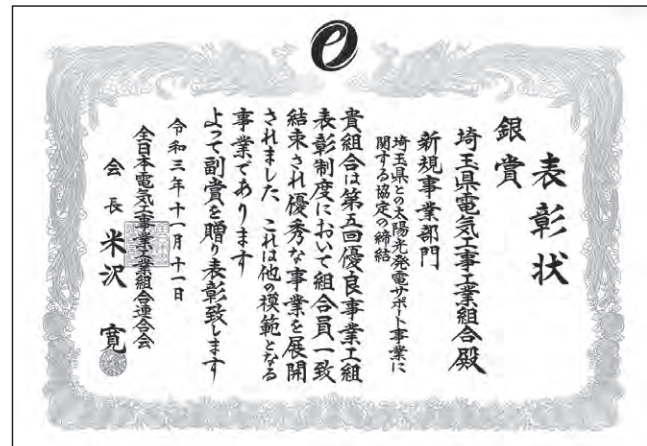 表彰状
銀賞
埼玉県電気工事工業組合殿
新規事業部門
埼玉県との太陽光発電サポート事業に
関する協定の締結
貴組合は第五回優良事業工組
表彰制度において組合員一致
結束され優秀な事業を展開
されました これは他の模範となる
事業であります
よって副賞を贈り表彰致します
令和三年十一月十一日
全日本電気工事業工業組合連合会
会長 米沢 寛